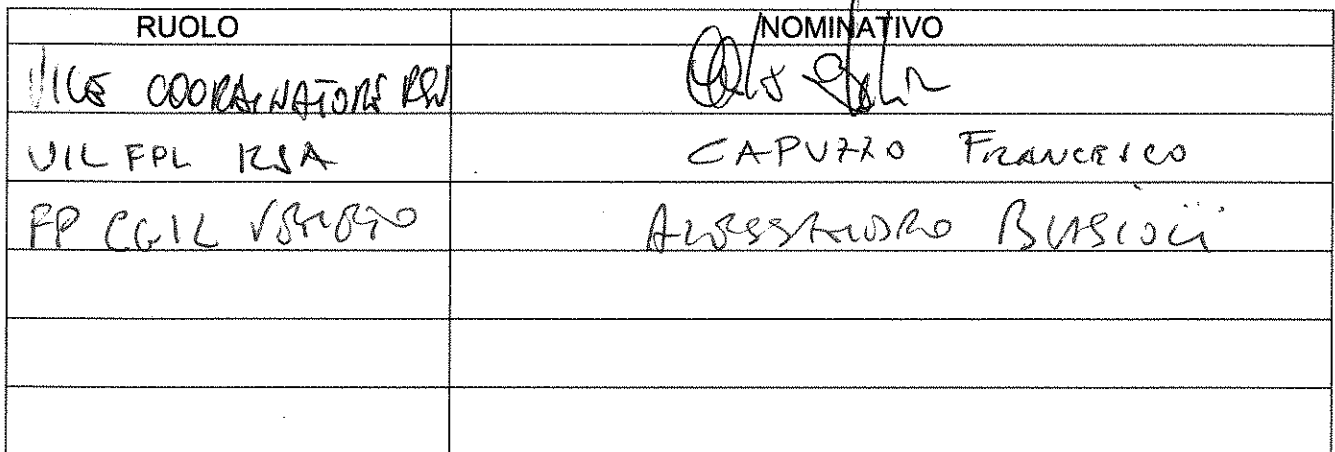 RUOLO NOMINATIVO
VICE COORDINATORE RSU
UIL FPL RSA CAPUZZO FRANCESCO
FP CGIL ALESSANDRO